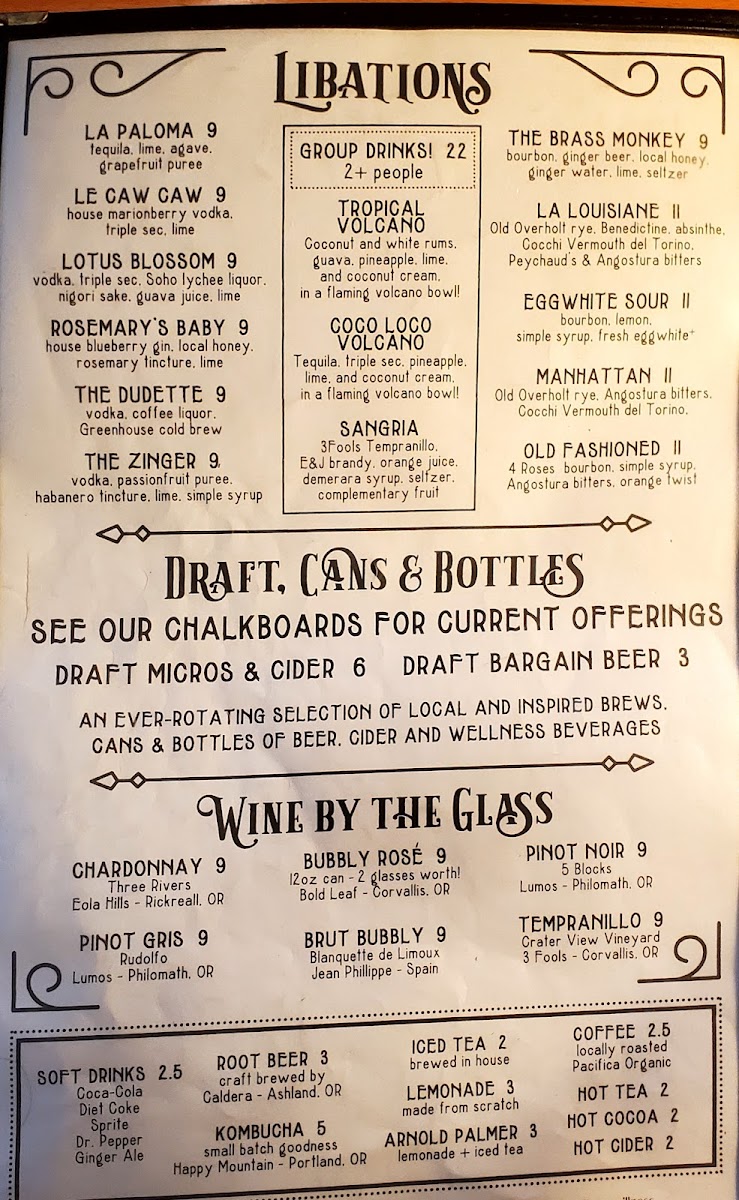 LIBATIONS
LA PALOMA 9
tequila, lime, agave,
grapefruit puree
LE CAW CAW 9
house marionberry vodka,
triple sec, lime
LOTUS BLOSSOM 9
vodka, triple sec, Soho lychee liquor,
nigori sake, guava juice, lime
ROSEMARY'S BABY 9
house blueberry gin, local honey,
rosemary tincture, lime
THE DUDETTE 9
vodka, coffee liquor,
Greenhouse cold brew
THE ZINGER 9
vodka, passionfruit puree,
habanero tincture, lime, simple syrup
GROUP DRINKS! 22
2+ people
TROPICAL
VOLCANO
Coconut and white rums,
guava, pineapple, lime,
and coconut cream,
in a flaming volcano bowl!
COCO LOCO
VOLCANO
Tequila, triple sec, pineapple,
lime, and coconut cream,
in a flaming volcano bowl!
SANGRIA
3Fools Tempranillo,
E&J brandy, orange juice,
demerara syrup, seltzer,
complementary fruit
THE BRASS MONKEY 9
bourbon, ginger beer, local honey,
ginger water, lime, seltzer
LA LOUISIANE 11
Old Overholt rye, Benedictine, absinthe,
Cocchi Vermouth del Torino,
Peychaud's & Angostura bitters
EGGWHITE SOUR 11
bourbon, lemon,
simple syrup, fresh eggwhite+
MANHATTAN 11
Old Overholt rye, Angostura bitters,
Cocchi Vermouth del Torino,
OLD FASHIONED 11
4 Roses bourbon, simple syrup,
Angostura bitters, orange twist
DRAFT, CANS & BOTTLES
SEE OUR CHALKBOARDS FOR CURRENT OFFERINGS
DRAFT MICROS & CIDER 6 DRAFT BARGAIN BEER 3
AN EVER-ROTATING SELECTION OF LOCAL AND INSPIRED BREWS,
CANS & BOTTLES OF BEER, CIDER AND WELLNESS BEVERAGES
WINE BY THE GLASS
CHARDONNAY 9
Three Rivers
Eola Hills - Rickreall, OR
PINOT GRIS 9
Rudolfo
Lumos - Philomath, OR
BUBBLY ROSÉ 9
12oz can - 2 glasses worth!
Bold Leaf - Corvallis, OR
BRUT BUBBLY 9
Blanquette de Limoux
Jean Phillippe - Spain
PINOT NOIR 9
5 Blocks
Lumos - Philomath, OR
TEMPRANILLO 9
Crater View Vineyard
3 Fools - Corvallis, OR
SOFT DRINKS 2.5
Coca-Cola
Diet Coke
Sprite
Dr. Pepper
Ginger Ale
ROOT BEER 3
craft brewed by
Caldera - Ashland, OR
KOMBUCHA 5
small batch goodness
Happy Mountain - Portland, OR
ICED TEA 2
brewed in house
LEMONADE 3
made from scratch
ARNOLD PALMER 3
lemonade + iced tea
COFFEE 2.5
locally roasted
Pacifica Organic
HOT TEA 2
HOT COCOA 2
HOT CIDER 2